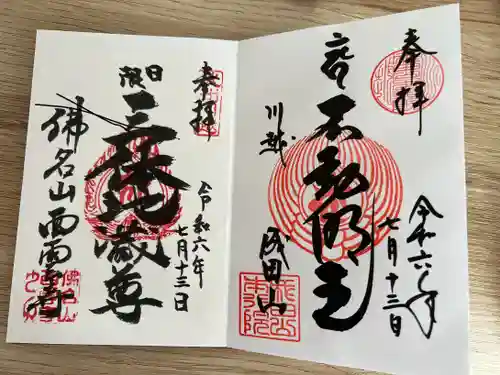 奉拝
不動明王
川越
成田山
令和六年
七月十三日
奉拝
日限
三体地蔵尊
佛名山西雲寺
令和六年
七月十三日